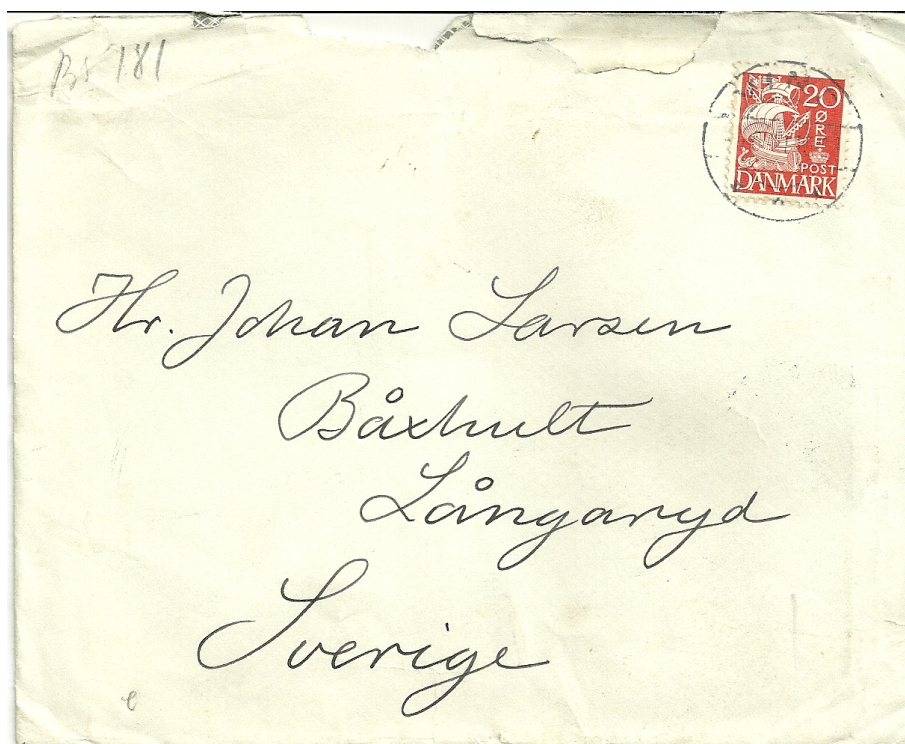 181
20
ØRE
POST
DANMARK
Hr. Johan Larsen
Båxhult
Långaryd
Sverige